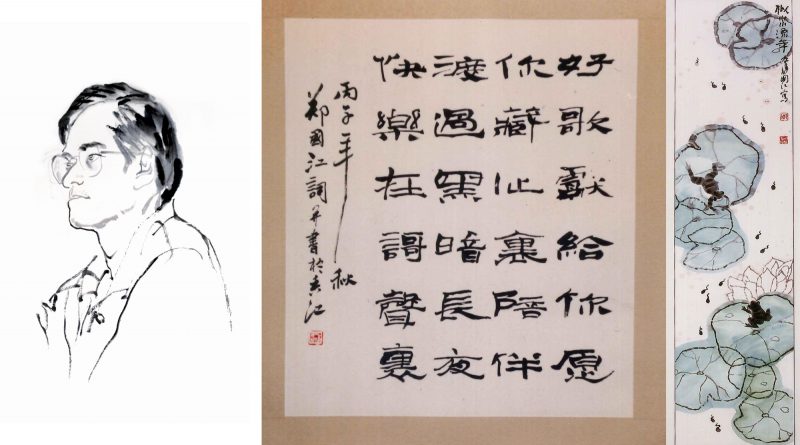 好歌獻給你愿
你藏心裏陪伴
渡過黑暗長夜
快樂在謌聲裏
丙子年秋
鄭國江詞并書於香江
似水流年